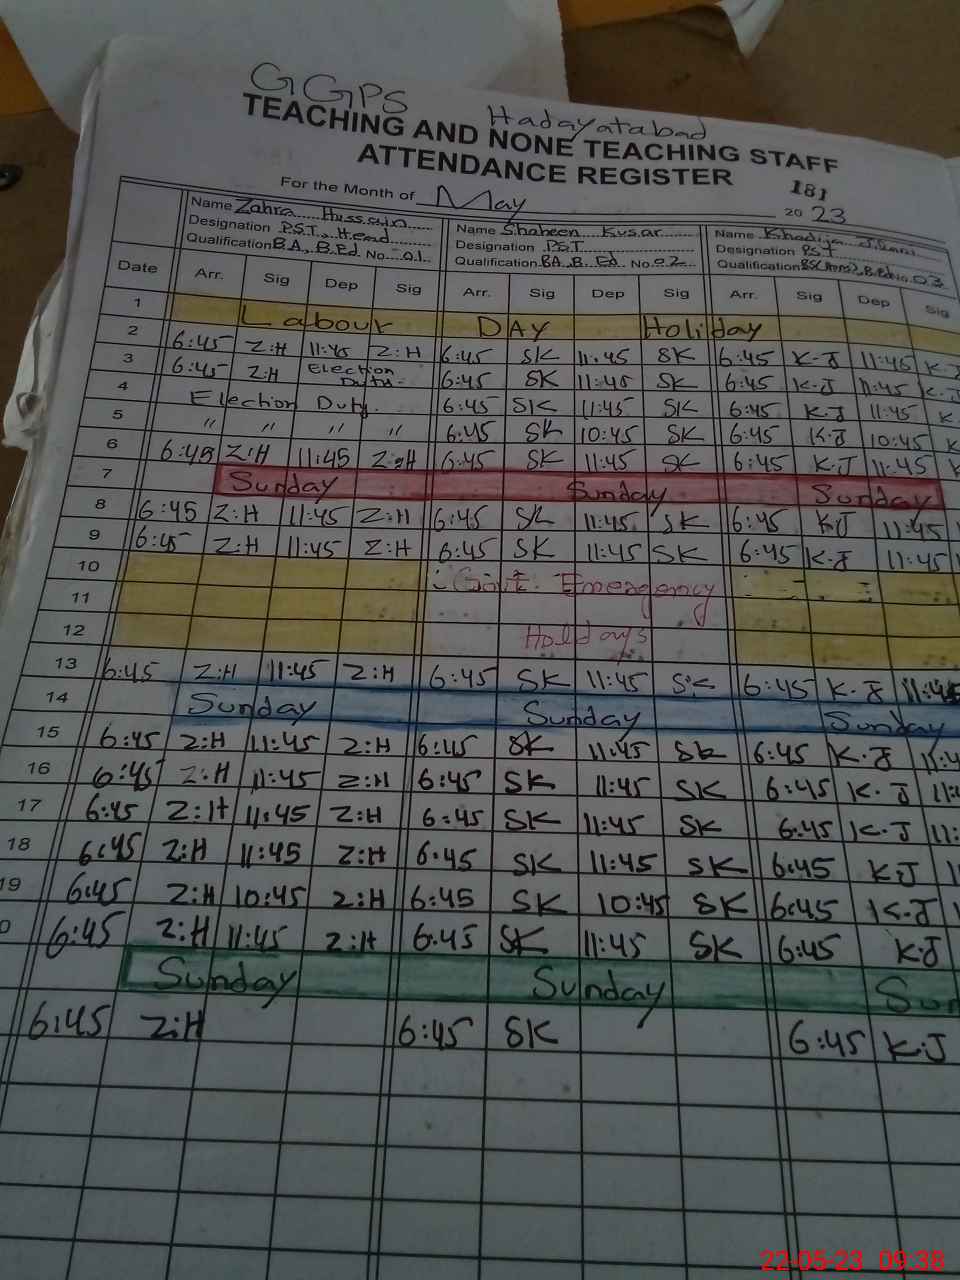 GGPS Hadayatabad
TEACHING AND NONE TEACHING STAFF
ATTENDANCE REGISTER
181
For the Month of May 2023
Name Zahra Hussain Name Shaheen Kusar Name Khadija
Designation P.S.T. Head Designation P.S.T Designation PST
Qualification BA, B.Ed No. 01. Qualification BA, B. Ed No. 02 Qualification BS(Hons), B.Ed No. 03
Date Arr. Sig Dep Sig Arr. Sig Dep Sig Arr. Sig Dep Sig
1 Labour DAY Holiday
2 6:45 Z:H 11:45 Z:H 6:45 SK 11:45 SK 6:45 K-J 11:45 K-J
3 6:45 Z:H Election Duty. 6:45 SK 11:45 SK 6:45 K-J 11:45 K-J
4 Election Duty. 6:45 SK 11:45 SK 6:45 K-J 11:45 K
5 " " " " 6:45 SK 10:45 SK 6:45 K.J 10:45 K
6 6:45 Z:H 11:45 Z:H 6:45 SK 11:45 SK 6:45 K.J 11:45 K
7 Sunday Sunday Sunday
8 6:45 Z:H 11:45 Z:H 6:45 SK 11:45 SK 6:45 K.J 11:45
9 6:45 Z:H 11:45 Z:H 6:45 SK 11:45 SK 6:45 K.J 11:45
10 Govt. Emergency
11
12 Holdays
13 6:45 Z:H 11:45 Z:H 6:45 SK 11:45 SK 6:45 K.J 11:45
14 Sunday Sunday Sunday
15 6:45 Z:H 11:45 Z:H 6:45 SK 11:45 SK 6:45 K.J 11:4
16 6:45 Z:H 11:45 Z:H 6:45 SK 11:45 SK 6:45 K.J 11:4
17 6:45 Z:H 11:45 Z:H 6:45 SK 11:45 SK 6:45 K.J 11:
18 6:45 Z:H 11:45 Z:H 6:45 SK 11:45 SK 6:45 K.J 1
19 6:45 Z:H 10:45 Z:H 6:45 SK 10:45 SK 6:45 K.J
0 6:45 Z:H 11:45 Z:H 6:45 SK 11:45 SK 6:45 K.J
Sunday Sunday Sun
6:45 Z:H 6:45 SK 6:45 K.J
22-05-23 09:38